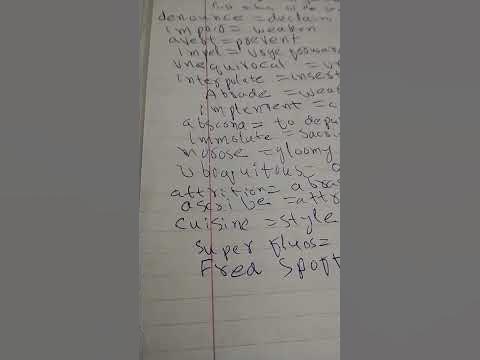 denounce = declaim
impair = weaken
avert = prevent
impel = urge forward
unequivocal =
interpolate = insert
Abrade = wea
implement =
abscond = to depa
immolate = sacri
morose = gloomy
Ubiquitous =
attrition = abras
ascribe = attr
cuisine = style
super fluos =
Fred Spott